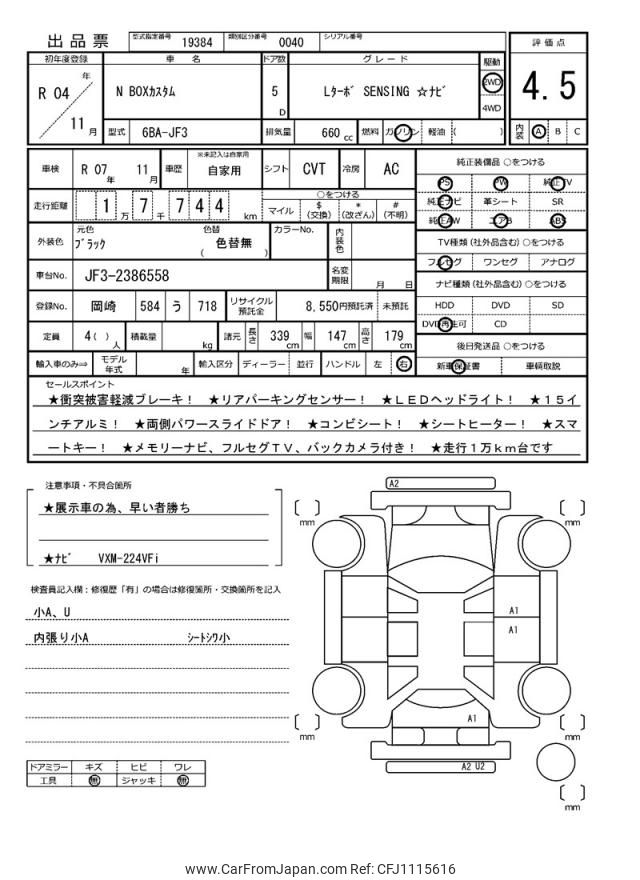 出品票 型式指定番号 19384 類別区分番号 0040 シリアル番号
評価点
4.5
内装 A B C
初年度登録 車名 ドア数 グレード 駆動
R 04 年 11 月
N BOXカスタム 5 D Lターボ SENSING ☆ナビ 2WD 4WD
型式 6BA-JF3 排気量 660 cc 燃料 ガソリン 軽油 ( )
車検 R 07 年 11 月 車歴 ※未記入は自家用 自家用 シフト CVT 冷房 AC
走行距離 1 万 7 千 7 4 4 km
○をつける
マイル $ (交換) * (改ざん) # (不明)
外装色 元色 ブラック 色替 ( 色替無 ) カラーNo. 内装色
車台No. JF3-2386558 名変期限 月 日
登録No. 岡崎 584 う 718 リサイクル預託金 8,550円預託済 未預託
定員 4 ( ) 人 積載量 kg 諸元 長さ 339 cm 幅 147 cm 高さ 179 cm
輸入車のみ⇒ モデル年式 年 輸入区分 ディーラー 並行 ハンドル 左 右
純正装備品 ○をつける
PS PW 純正TV
純正ナビ 革シート SR
純正AW エアB ABS
TV種類 (社外品含む) ○をつける
フルセグ ワンセグ アナログ
ナビ種類 (社外品含む) ○をつける
HDD DVD SD
DVD再生可 CD
後日発送品 ○をつける
新車保証書 車輌取説
セールスポイント
★衝突被害軽減ブレーキ! ★リアパーキングセンサー! ★LEDヘッドライト! ★15イ
ンチアルミ! ★両側パワースライドドア! ★コンビシート! ★シートヒーター! ★スマ
ートキー! ★メモリーナビ、フルセグTV、バックカメラ付き! ★走行1万km台です
注意事項・不具合箇所
★展示車の為、早い者勝ち
★ナビ VXM-224VFi
検査員記入欄:修復歴「有」の場合は修復箇所・交換箇所を記入
小A、U
内張り小A シートシワ小
ドアミラー キズ ヒビ ワレ
工具 無 ジャッキ 無
A2
mm
mm
A1
A1
A1
mm
mm
A2 U2
mm
www.CarFromJapan.com Ref: CFJ1115616